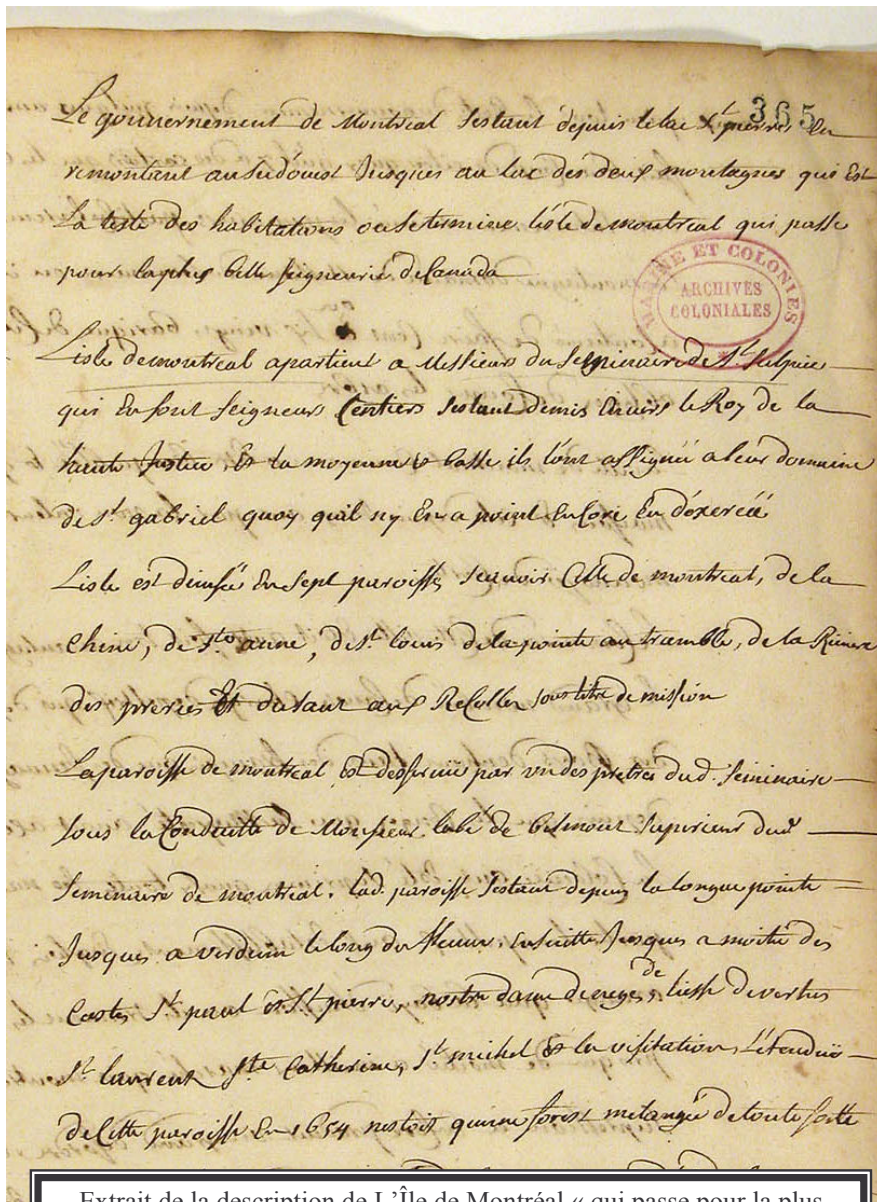 365
Le gouuernement de Montreal sestant depuis le lac St pierre En
remontant au sudouest Jusques au lac des deux montagnes qui Est
La teste des habitations ou se termine lisle de montreal qui passe
pour la plus belle seigneurie de Canada
MARINE ET COLONIES
ARCHIVES
COLONIALES
Lisle de montreal apartient a Messieurs du Seminaire de St Sulpice
qui En sont seigneurs sestant demis Enuers le Roy de la
haute Justice, Et la moyenne & basse ils lont assignée a leur domaine
de St gabriel quoy quil ny En a point Encore En d'exercée
Lisle est diuisée En sept paroisses scauoir Celle de montreal, de la
Chine, de Ste anne, de St louis de la pointe au tramble, de la Riuiere
des preries Et du saut aux Recollez sous titre de mission
La paroisse de montreal Est desseruie par vn des pretres dud. Seminaire
sous la Conduitte de Monsieur labé de belmont superieur dud
Seminaire de montreal. lad. paroisse sestant depuis la longue pointe
Jusques a verdun le long du fleuue. Ensuitte Jusques a moitié des
Costes St paul & St pierre, nostre dame de neges, de liesse de vertus
St laurent Ste Catherine, St michel & la visitation, L'étenduë
de Cette paroisse En 1654 nestoit quune forest melangée de toute sorte
Extrait de la description de L'Île de Montréal « qui passe pour la plus